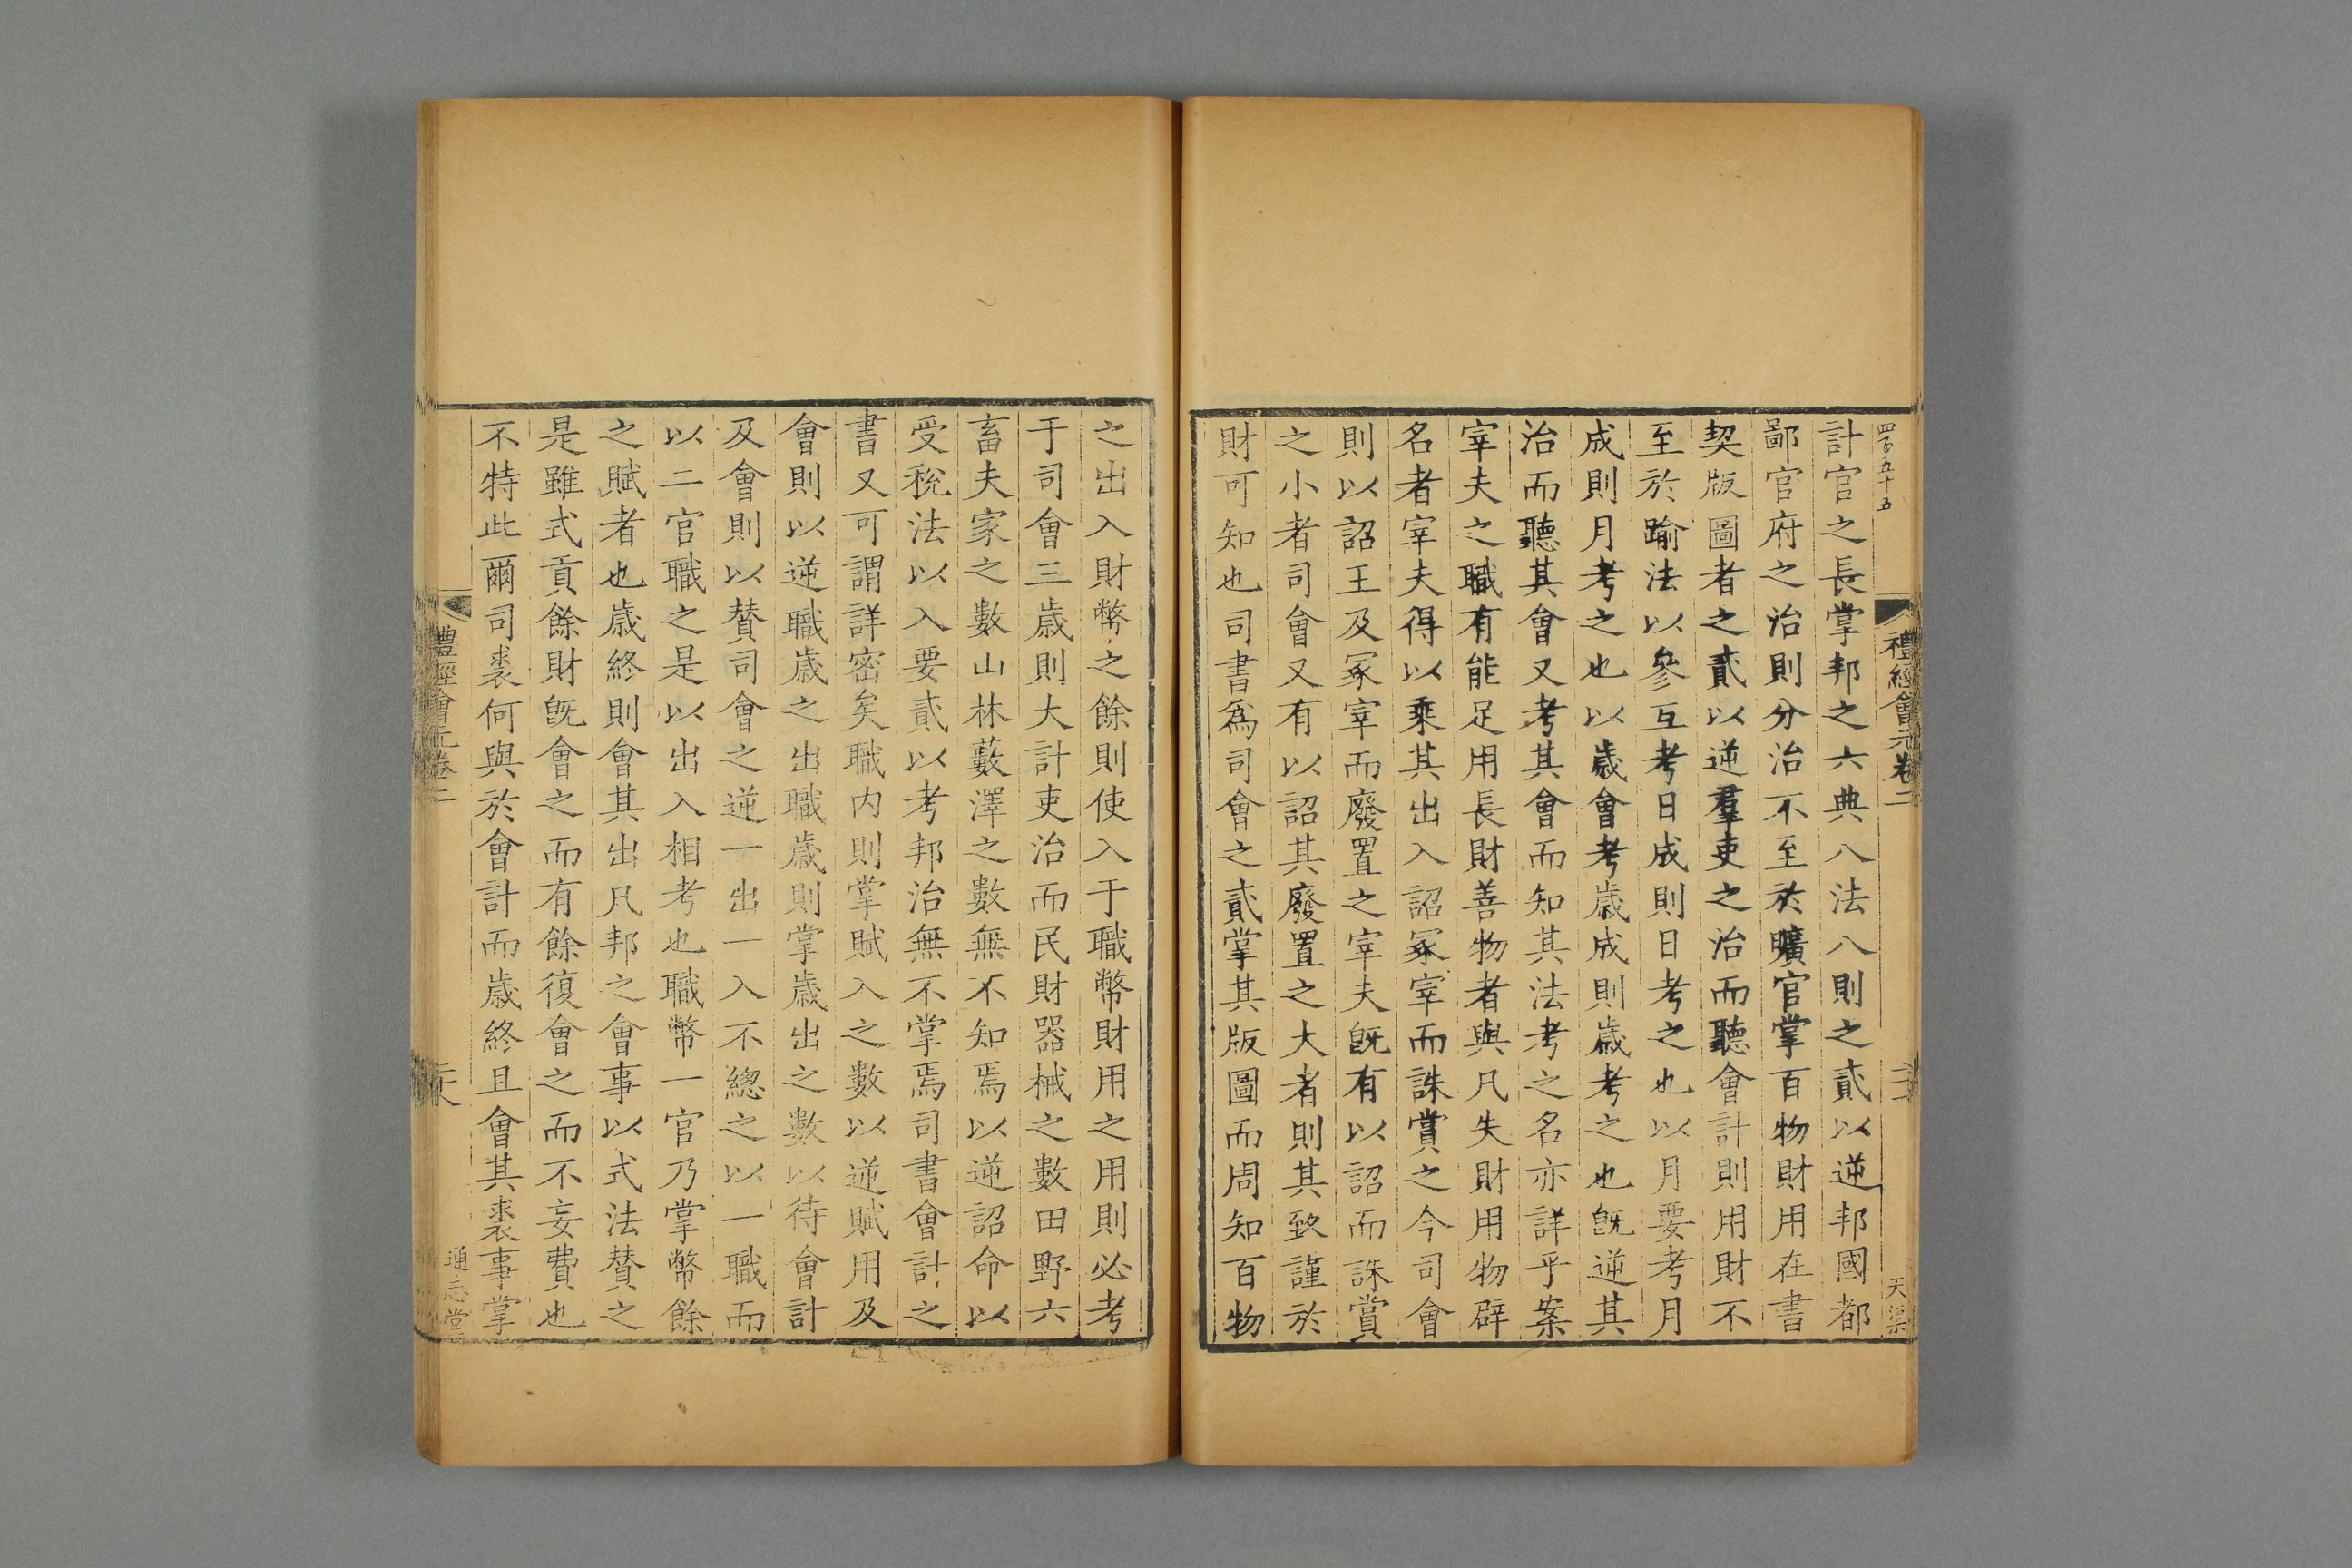 計官之長掌邦之六典八法八則之貳以逆邦國都
鄙官府之治則分治不至於曠官掌百物財用在書
契版圖者之貳以逆羣吏之治而聽會計則用財不
至於踰法以參互考日成則日考之也以月要考月
成則月考之也以歲會考歲成則歲考之也旣逆其
治而聽其會又考其會而知其法考之名亦詳乎案
宰夫之職有能足用長財善物者與凡失財用物辟
名者宰夫得以乘其出入詔冢宰而誅賞之今司會
則以詔王及冢宰而廢置之宰夫旣有以詔而誅賞
之小者司會又有以詔其廢置之大者則其致謹於
財可知也司書爲司會之貳掌其版圖而周知百物
之出入財幣之餘則使入于職幣財用之用則必考
于司會三歲則大計吏治而民財器械之數田野六
畜夫家之數山林藪澤之數無不知焉以逆詔命以
受稅法以入要貳以考邦治無不掌焉司書會計之
書又可謂詳密矣職内則掌賦入之數以逆賦用及
會則以逆職歲之出職歲則掌歲出之數以待會計
及會則以贊司會之逆一出一入不總之以一職而
以二官職之是以出入相考也職幣一官乃掌幣餘
之賦者也歲終則會其出凡邦之會事以式法贊之
是雖式貢餘財旣會之而有餘復會之而不妄費也
不特此爾司裘何與於會計而歲終且會其裘事掌
禮經會元卷二
通志堂